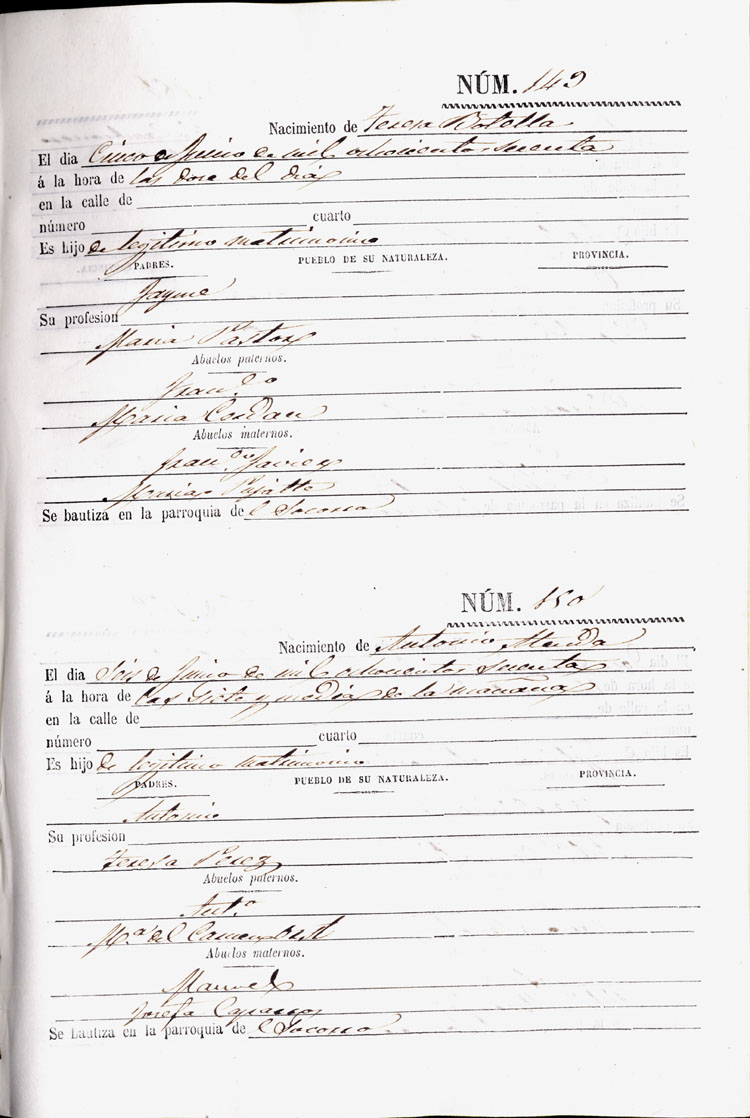 NÚM. 149
Nacimiento de Teresa Botella
El dia Cinco de Junio de mil ochocientos sesenta
á la hora de las doce del dia
en la calle de
número cuarto
Es hijo de legitimo matrimonio
PADRES. PUEBLO DE SU NATURALEZA. PROVINCIA.
Jayme
Su profesion
Maria Pastor
Abuelos paternos.
Fran.co
Maria Cerdan
Abuelos maternos.
Fran.co Javier
Maria
Se bautiza en la parroquia de l Socorro
NÚM. 150
Nacimiento de Antonio
El dia Seis de Junio de mil ochocientos sesenta
á la hora de las siete y media de la mañana
en la calle de
número cuarto
Es hijo de legitimo matrimonio
PADRES. PUEBLO DE SU NATURALEZA. PROVINCIA.
Antonio
Su profesion
Teresa Perez
Abuelos paternos.
Ant.o
M.a del Carmen
Abuelos maternos.
Manuel
Josefa
Se bautiza en la parroquia de l Socorro